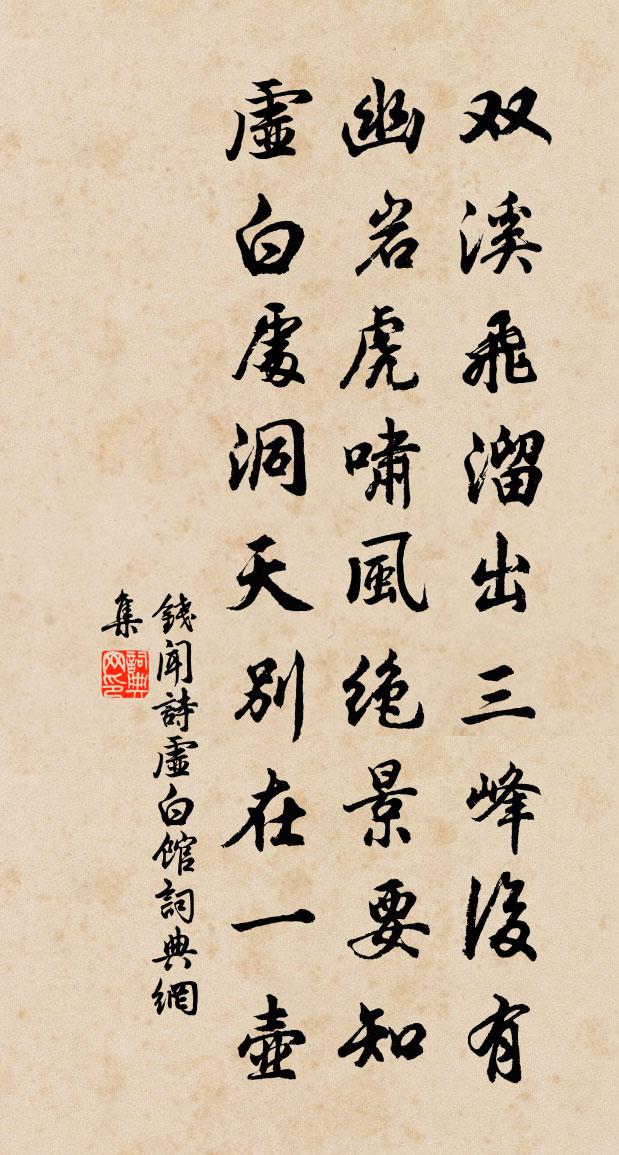 双溪飛溜出三峰後有
幽岩虎啸風绝景要知
虛白處洞天别在一壺
錢聞詩虛白館詞典網
集
詞典
网印